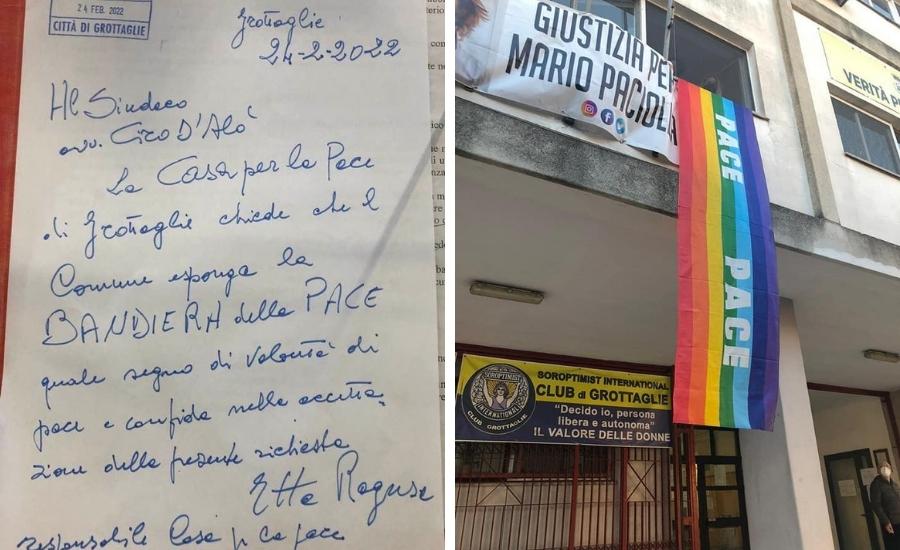 24 FEB. 2022
CITTÀ DI GROTTAGLIE
Grottaglie
24-2-2022
Al Sindaco
avv. Ciro D'Alò
La Casa per la Pace
di Grottaglie chiede che il
Comune esponga la
BANDIERA della PACE
quale segno di volontà di
pace e confida nella accetta-
zione della presente richiesta
Etta Ragusa
responsabile Casa p la pace
GIUSTIZIA PER
MARIO PACIOLLA
PACE
PACE
VERITÀ
SOROPTIMIST INTERNATIONAL
CLUB di GROTTAGLIE
"Decido io, persona
libera e autonoma"
IL VALORE DELLE DONNE
SOROPTIMIST
INTERNATIONAL
CLUB GROTTAGLIE